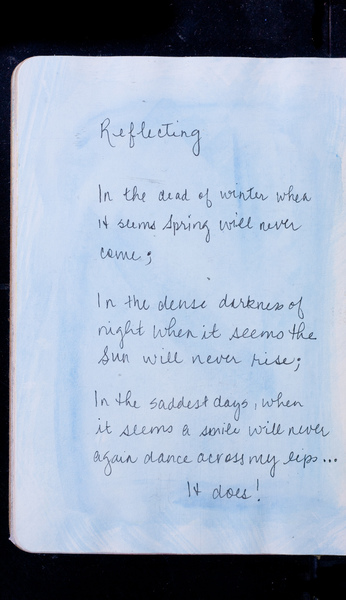 Reflecting
In the dead of winter when
it seems Spring will never
come;
In the dense darkness of
night when it seems the
Sun will never rise;
In the saddest days, when
it seems a smile will never
again dance across my lips...
It does!